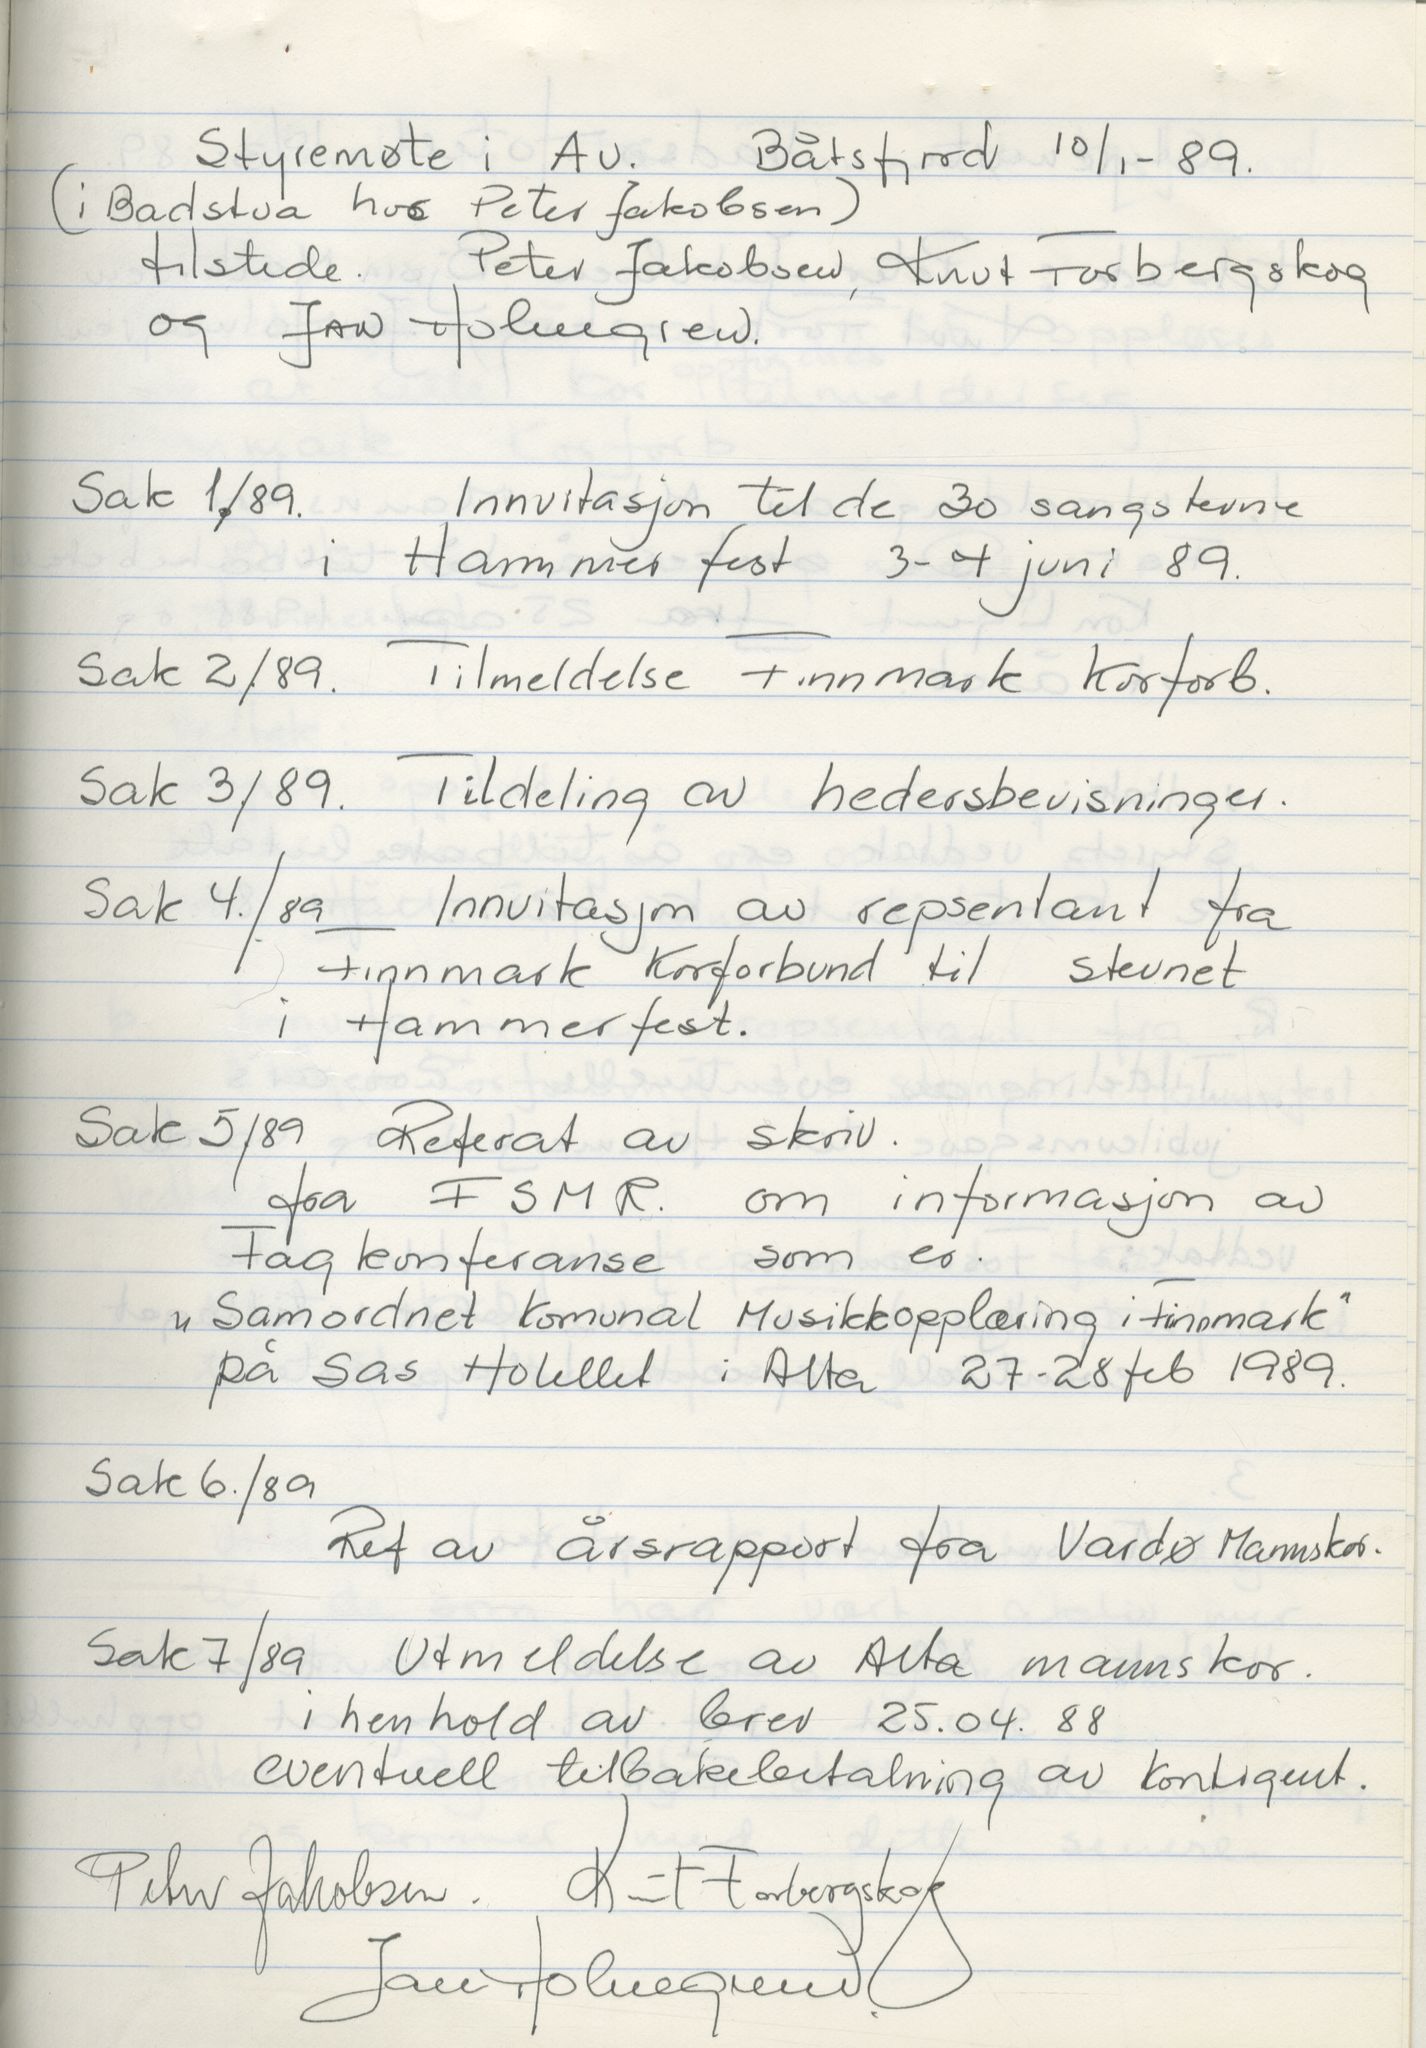 Styremøte i AU. Båtsfjord 10/1-89.
(i Badstua hos Peter Jakobsen)
tilstede. Peter Jakobsen, Knut Forbergskog
og Jan Holmgren.
Sak 1./89. Innvitasjon til de 30 sangstevne
i Hammerfest 3-4 juni 89.
Sak 2/89. Tilmeldelse Finnmark Korforb.
Sak 3/89. Tildeling av hedersbevisninger.
Sak 4./89 Innvitasjon av repsentant fra
Finnmark Korforbund til stevnet
i Hammerfest.
Sak 5/89 Referat av skriv.
fra FSMR. om informasjon av
Fagkonferanse som er.
"Samordnet Komunal Musikkopplæring i Finnmark"
på Sas Hotellet i Alta 27-28 feb 1989.
Sak 6./89
Ref av årsrapport fra Vardø Mannskor.
Sak 7/89 Utmeldelse av Alta mannskor.
i henhold av brev 25.04.88
eventuell tilbakebetalning av kontigent.
Peter Jakobsen. Knut Forbergskog
Jan Holmgren